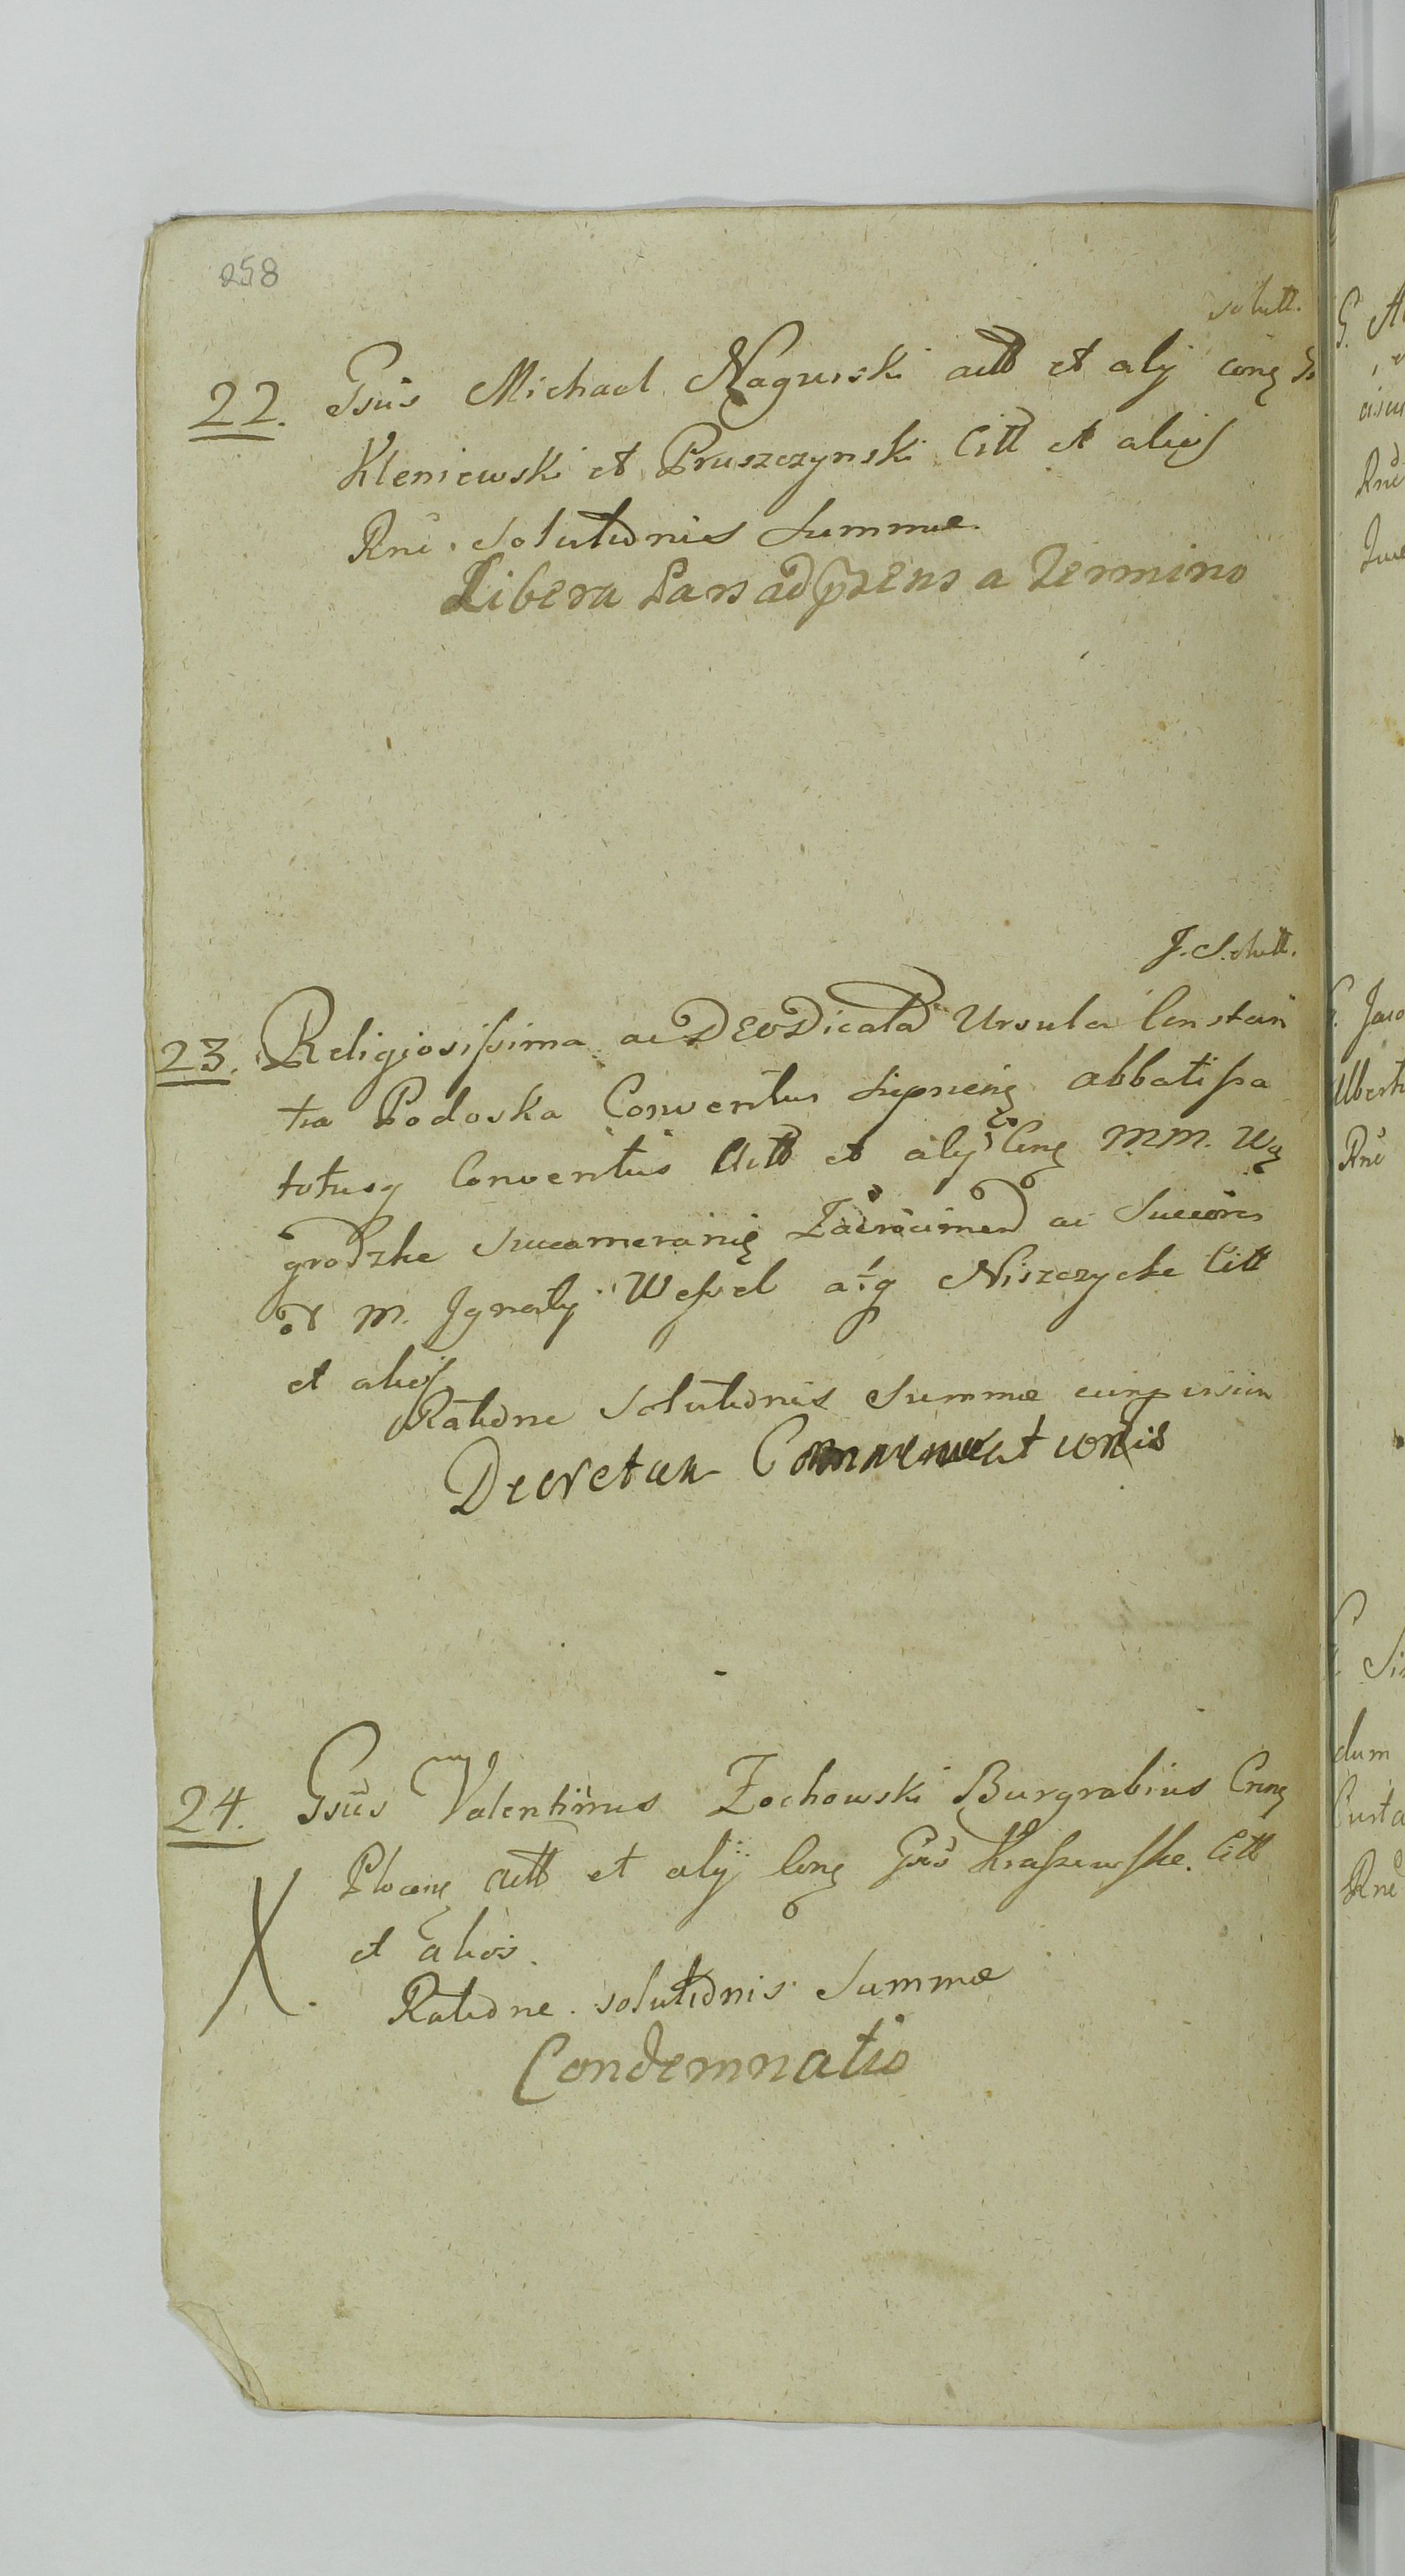 258
solutt.
22. Gsus Michael Nagurski actt et alÿ cong
Kleniewski et Pruszczynski Citt et alios
Rne. solutionis Summæ
Libera Pars ad præns a Termino
J. Solutt.
23. Religiosissima ac DEO Dicata Ursula Constan
tia Podoska Conventus Sierpceng abbatissa
totusq Conventus Actt et alÿ Cong MM. Wy
grodzkie Succamerarię Zacrocimen ac Succores
et M. Ignaty Wessel atq Niszczyckie Citt
et alios
Ratione Solutionis Summæ
Decretum Commenuationis
24. Gsus Valentinus Zochowski Burgrabius Crng
Ploceng actt et alÿ Cong Gsos Krassewskie Citt
et alios.
X.
Ratione solutionis Summæ
Condemnatio